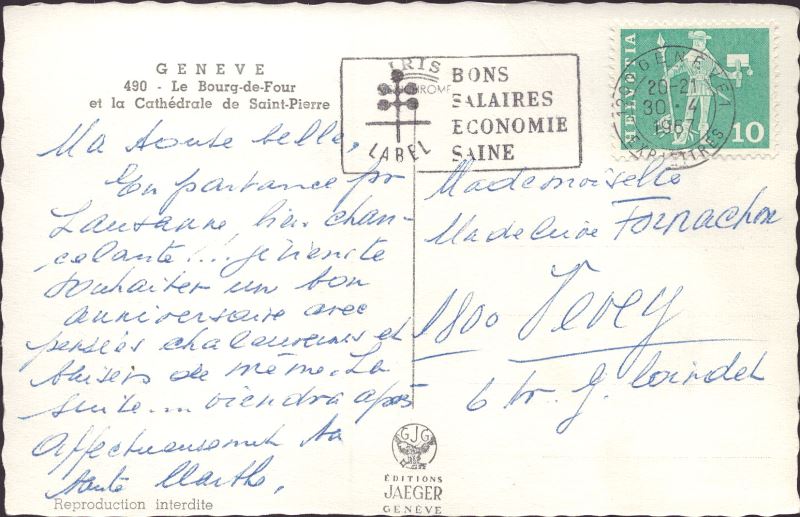 GENEVE
490 - Le Bourg-de-Four
et la Cathédrale de Saint-Pierre
IRIS
LABEL
BONS
SALAIRES
ECONOMIE
SAINE
HELVETIA
10
1200 GENEVE 1
20-21
30.4
1967
EXP. LETTRES
Ma toute belle,
En partance pr
Lausanne, bien chan-
celante!... je viens te
souhaiter un bon
anniversaire avec
pensées chaleureuses et
baisers de même. La
suite.... viendra après
Affectueusement ta
tante Marthe.
Mademoiselle
Madeleine Fornachon
1800 Vevey
6 tr. g.
GJG
EDITIONS
JAEGER
GENÈVE
Reproduction interdite